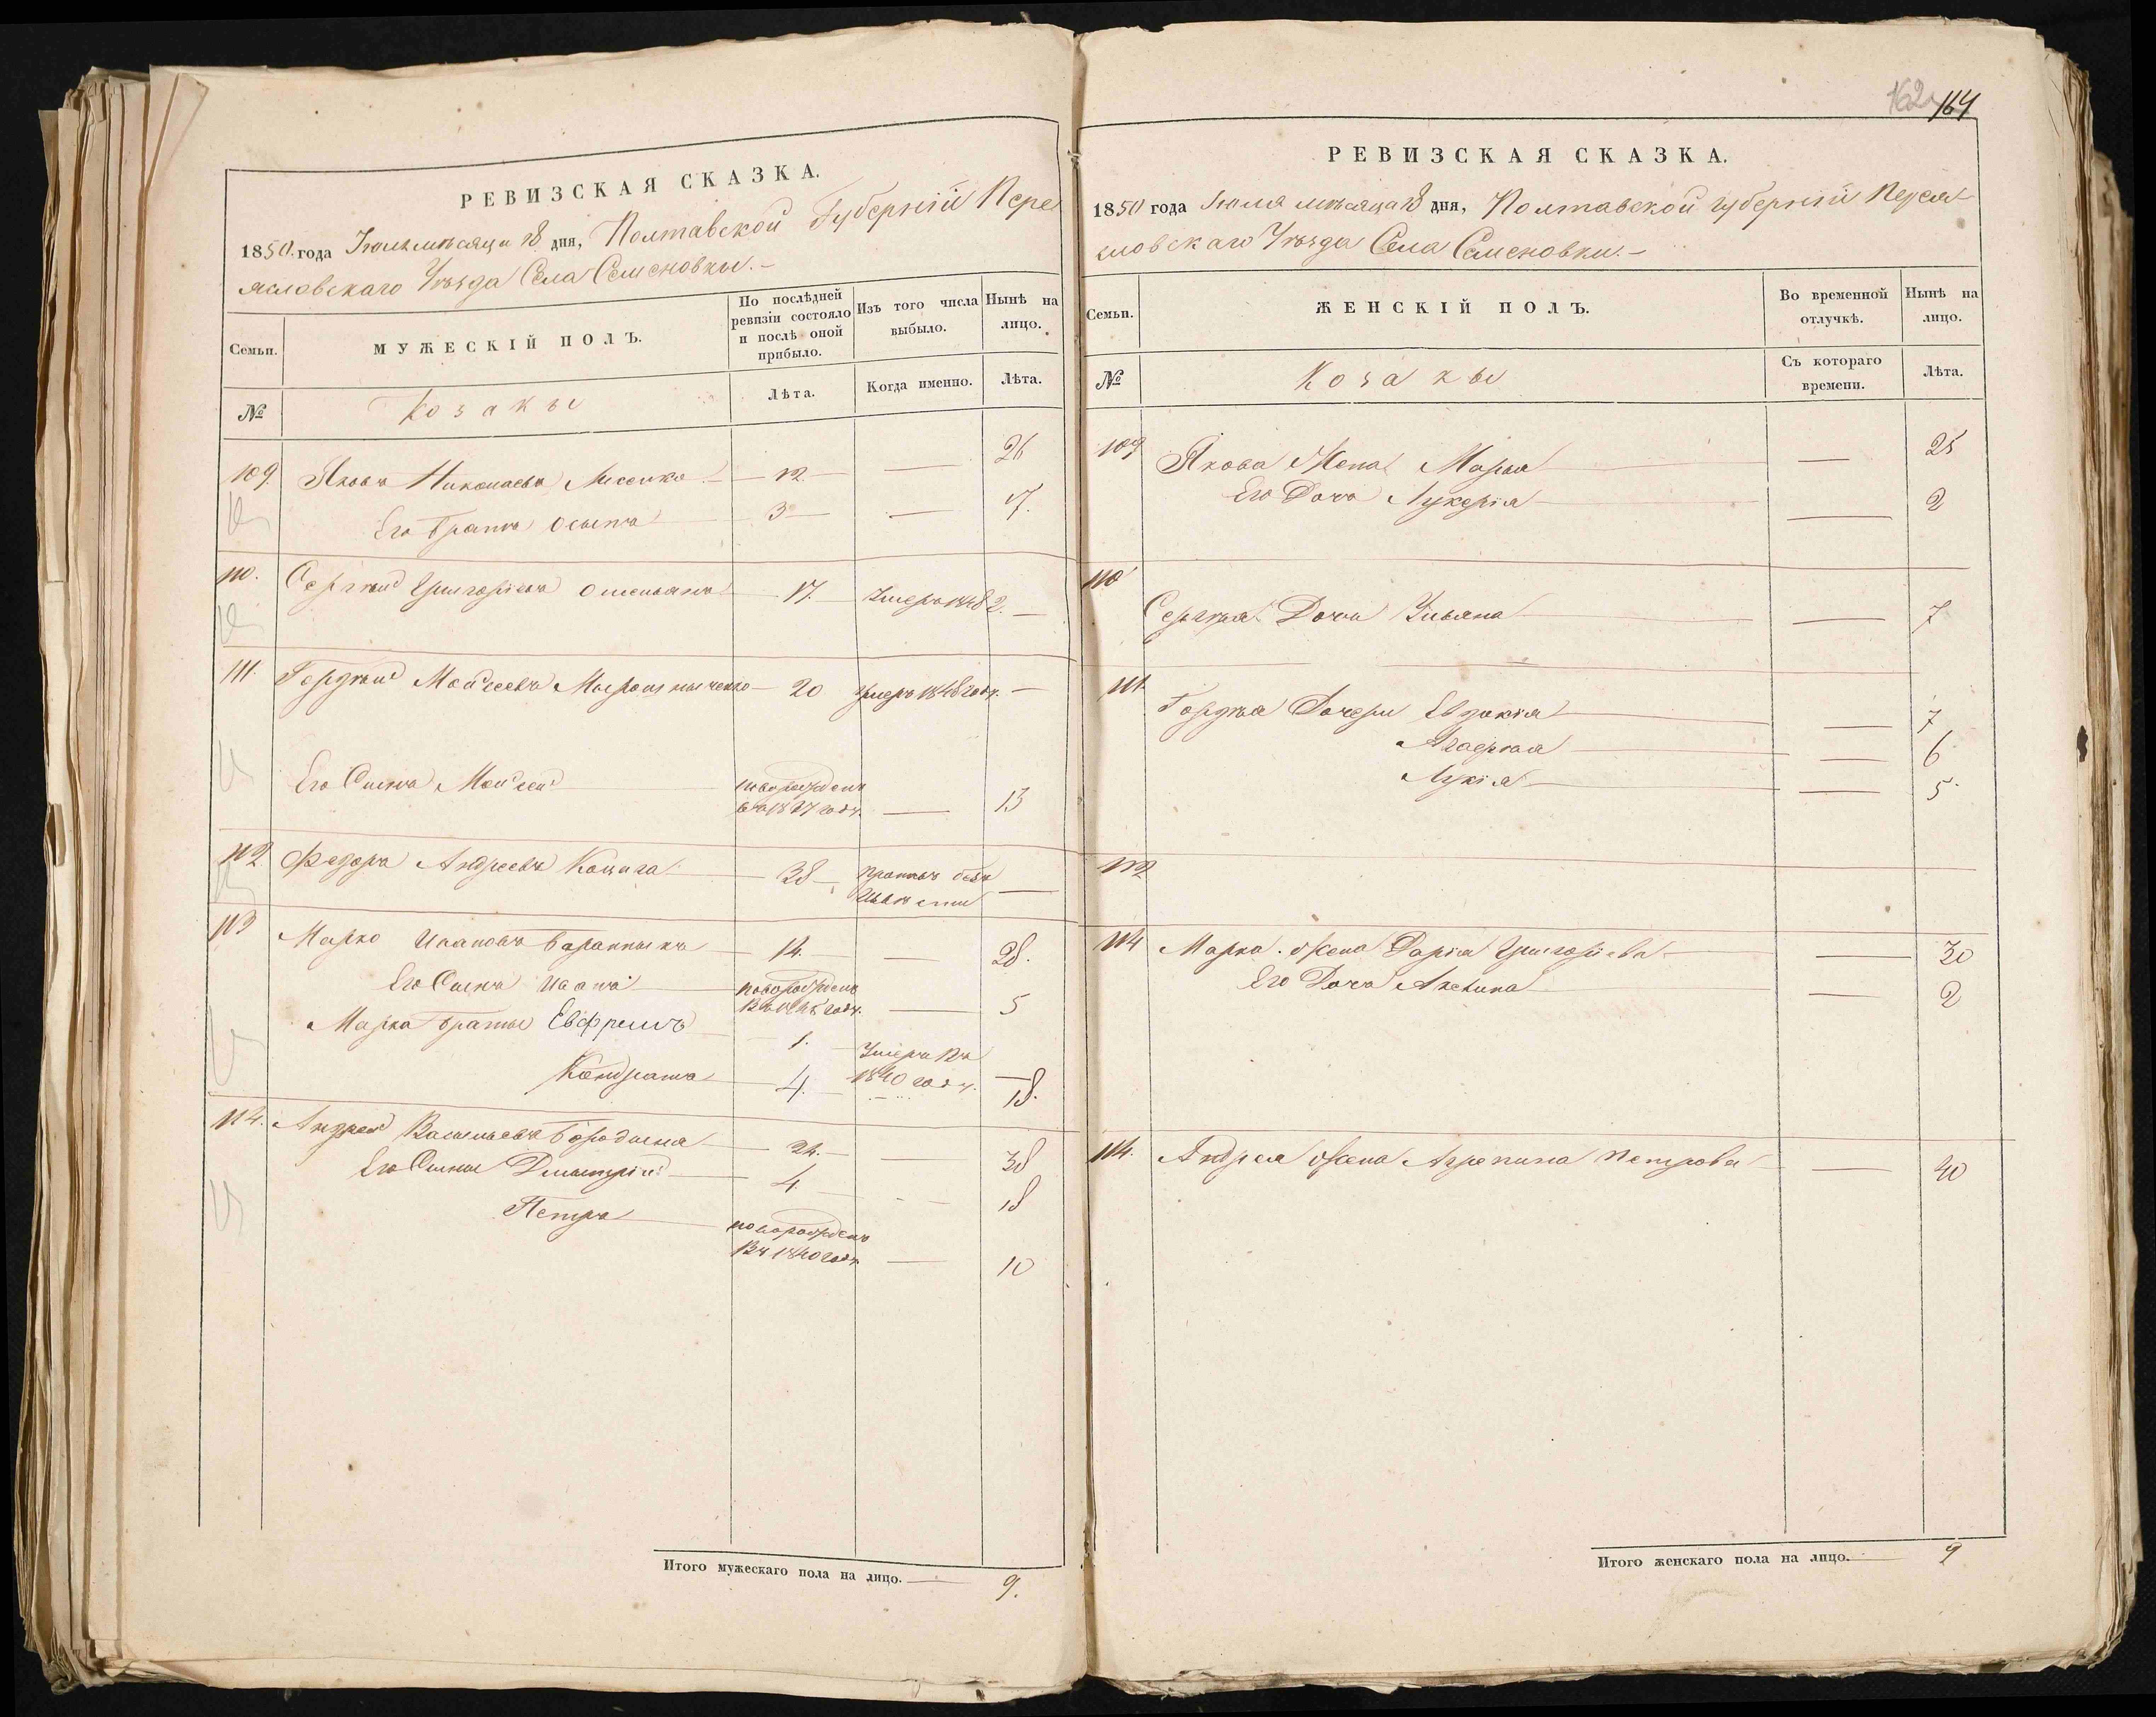 РЕВИЗСКАЯ СКАЗКА.
1850 года Іюля мѣсяца 18 дня, Полтавской Губерніи Пере
яславскаго Уѣзда Села Семеновки.-
Семьи.
МУЖЕСКІЙ ПОЛЪ.
По послѣдней ревизіи состояло и послѣ оной прибыло.
Изъ того числа выбыло.
Нынѣ на лицо.
№
Козаки
Лѣта.
Когда именно.
Лѣта.
109. Яковъ Николаевъ 12. — 26
Его братъ Осипъ 3 — 17.
110. Сергѣй Григоріевъ 17. Умеръ 184 —
111. Гордѣй Моисеевъ 20 умеръ 1848 году. —
Его Сынъ Моисей новорожденъ
въ 1837 году. — 13
112. Федоръ Андреевъ 38 —
113 Марко Ивановъ 14. — 28.
Его Сынъ Иванъ новорожденъ
въ 1845 году. — 5
Марка братья Евфремъ 1. Умеръ въ
1840 году. —
Кондратъ 4. 18.
114. Андрей Васильевъ Бородина 24. — 38
Его Сыны Дмитрій 4. — 18
Петръ новорожденъ
въ 1840 году. — 10
Итого мужескаго пола на лицо. — 9.
162 164
РЕВИЗСКАЯ СКАЗКА.
1850 года Іюля мѣсяца 18 дня, Полтавской губерніи Перея
славскаго Уѣзда Села Семеновки.-
Семьи.
ЖЕНСКІЙ ПОЛЪ.
Во временной отлучкѣ.
Нынѣ на лицо.
№
Козаки
Съ котораго времени.
Лѣта.
109 Якова Жена Марья — 25
Его Дочь Лукерія — 2
110
Сергѣя Дочь Ульяна — 7
111. Гордѣя Дочери Евдокія — 7
Агафія — 6
Лукія — 5.
112
114 Марка жена Дарія Григоріева — 30
Его Дочь Акелина — 2
114. Андрея жена Агрепина Петрова — 40
Итого женскаго пола на лицо. — 9